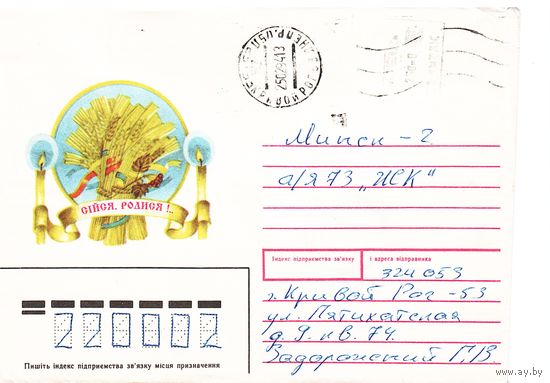 Минск - 2
а/я 73 „ИСК"
СІЙСЯ, РОДИСЯ!..
Індекс підприємства зв'язку
і адреса відправника
324053
г. Кривой Рог - 53
ул. Пятихатская
д. 9. кв. 74.
Задорожский П В
220002
Пишіть індекс підприємства зв'язку місця призначення
www.ay.by